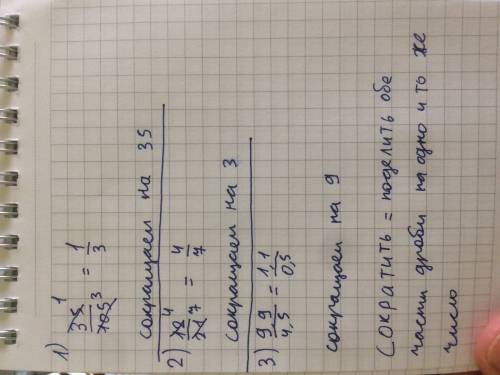 1)
35/105 = 1/3
1
3
сокращаем на 35
2) 12/21 = 4/7
4
7
сокращаем на 3
3) 9,9/4,5 = 1,1/0,5
сокращаем на 9
СОКРАТИТЬ = поделить обе
части дроби на одно и то же
число